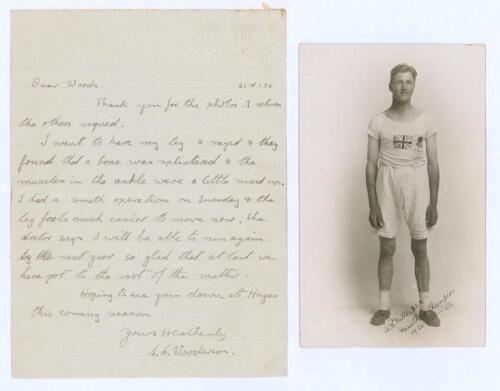 Dear Woods 21.8.36
Thank you for the photos. I return
the others signed.
I went to have my leg x-rayed & they
found that a bone was splintered & the
muscles in the ankle were a little mixed up.
I had a small operation on Tuesday & the
leg feels much easier to move now. The
doctor says I will be able to run again
by the next year so glad that at last we
have got to the root of the matter.
Hoping to see you down at Hayes
this coming season
Yours Heatherly
S. C. Wooderson.
Champion
1920